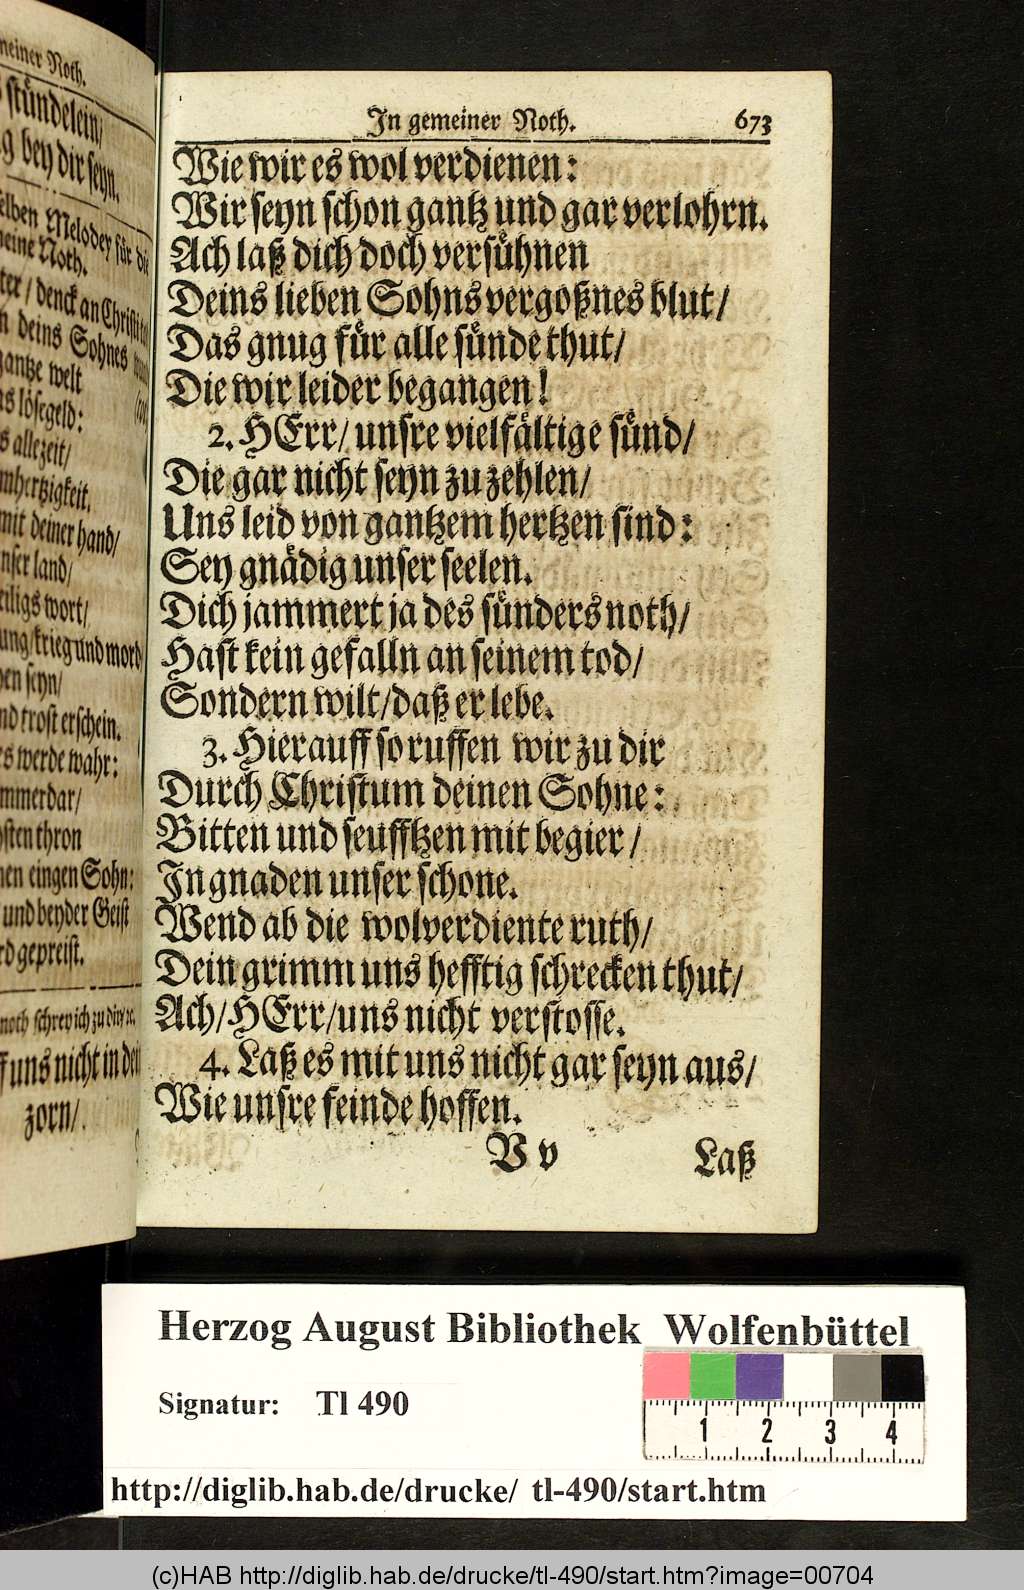 meiner Noth.
stündelein/
bey dir seyn.
selben Melodey für die
meine Noth.
denck an Christi
deins Sohnes
gantze welt
lösegeld:
allezeit/
mhertzigkeit.
mit deiner hand/
unser land/
heiligs wort/
krieg und mord
seyn/
nd trost erschein.
es werde wahr:
immerdar/
sten thron
eingen Sohn:
und beyder Geist
gepreist.
noth schrey ich zu dir/ ꝛc.
uns nicht in dein
zorn/
In gemeiner Noth. 673
Wie wir es wol verdienen:
Wir seyn schon gantz und gar verlohrn.
Ach laß dich doch versühnen
Deins lieben Sohns vergoßnes blut/
Das gnug für alle sünde thut/
Die wir leider begangen!
2. HErr/ unsre vielfältige sünd/
Die gar nicht seyn zu zehlen/
Uns leid von gantzem hertzen sind:
Sey gnädig unser seelen.
Dich jammert ja des sünders noth/
Hast kein gefalln an seinem tod/
Sondern wilt/ daß er lebe.
3. Hierauff so ruffen wir zu dir
Durch Christum deinen Sohne:
Bitten und seufftzen mit begier/
In gnaden unser schone.
Wend ab die wolverdiente ruth/
Dein grimm uns hefftig schrecken thut/
Ach/ HErr/ uns nicht verstosse.
4. Laß es mit uns nicht gar seyn aus/
Wie unsre feinde hoffen.
V v Laß
Herzog August Bibliothek Wolfenbüttel
Signatur: Tl 490
1 2 3 4
http://diglib.hab.de/drucke/ tl-490/start.htm
(c)HAB http://diglib.hab.de/drucke/tl-490/start.htm?image=00704